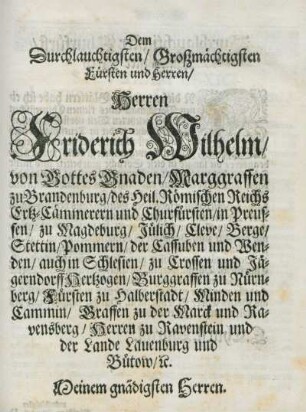 Dem
Durchlauchtigsten/ Großmächtigsten
Fürsten und Herren/
Herren
Friderich Wilhelm/
von Gottes Gnaden/ Marggraffen
zu Brandenburg/ des Heil. Römischen Reichs
Ertz-Cämmerern und Churfürsten/ in Preus-
sen/ zu Magdeburg/ Jülich/ Cleve/ Berge/
Stettin/ Pommern/ der Cassuben und Wen-
den/ auch in Schlesien/ zu Crossen und Jä-
gerndorff Hertzogen/ Burggraffen zu Nürn-
berg/ Fürsten zu Halberstadt/ Minden und
Cammin/ Graffen zu der Marck und Ra-
vensberg/ Herren zu Ravenstein und
der Lande Lauenburg und
Bütow/ ꝛc.
Meinem gnädigsten Herren.